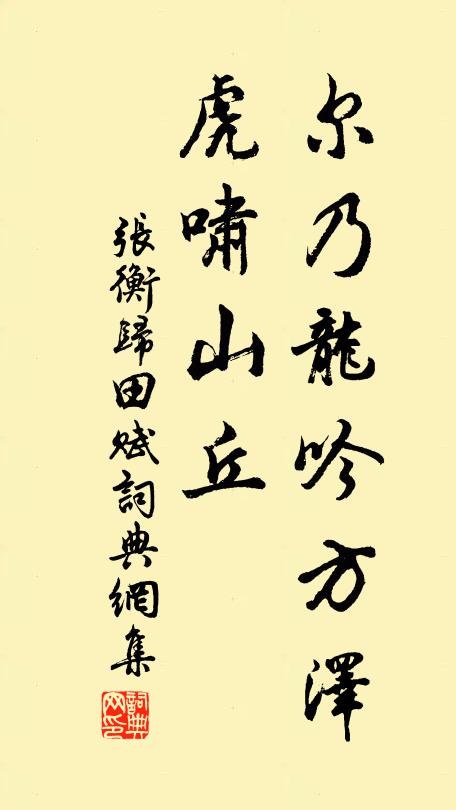 尔乃龍吟方澤
虎嘯山丘
張衡歸田賦詞典網集
詞典网印